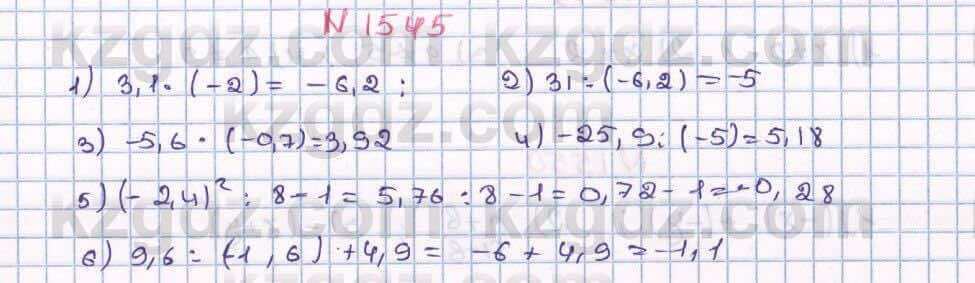 N 1545
kzgdz.com kzgdz.com
1) 3,1 · (-2) = -6,2 ; 2) 31 : (-6,2) = -5
3) -5,6 · (-0,7) = 3,92 4) -25,9 : (-5) = 5,18
5) (-2,4)² : 8 - 1 = 5,76 : 8 - 1 = 0,72 - 1 = -0,28
6) 9,6 : (-1,6) + 4,9 = -6 + 4,9 = -1,1